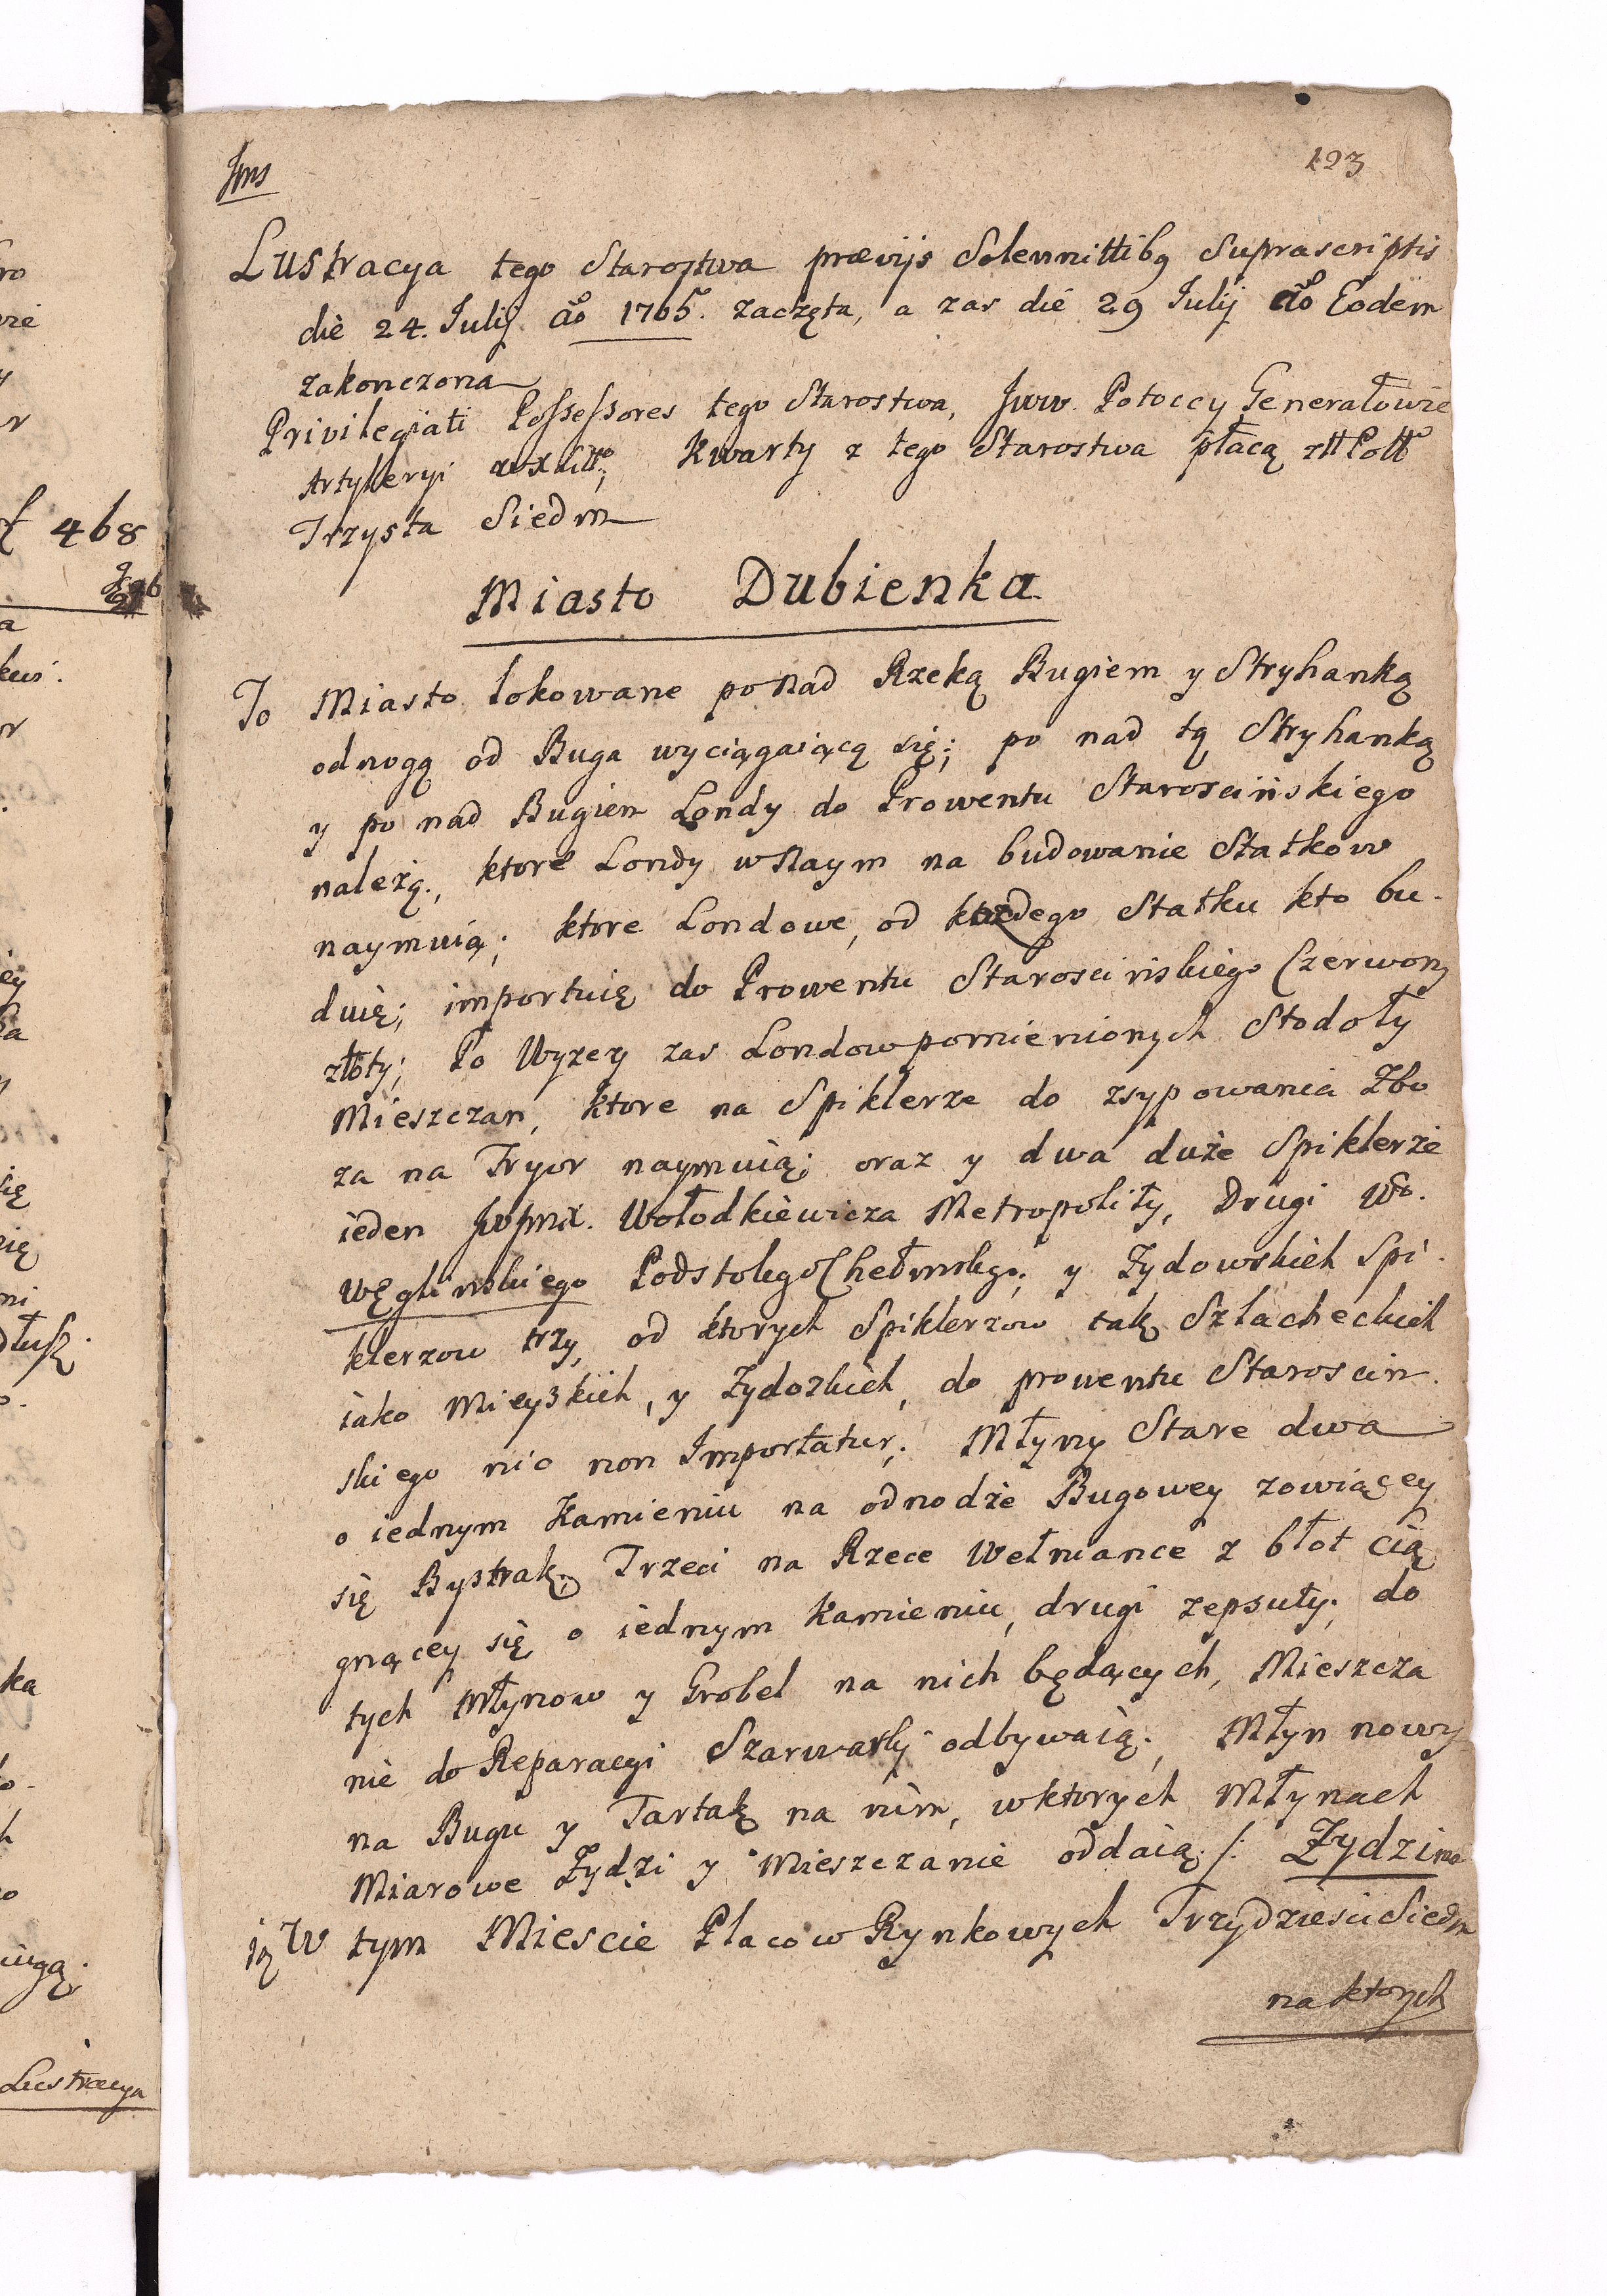 Jms
123
Lustracya tego Starostwa prævijs Solennittibq Suprascriptis
die 24. Julij. ao 1765. zaczęta, a zas die 29 Julij ao Eodem
zakonczona
Privilegiati Possessores tego Starostwa, Jww. Potoccy Generałowie
Artylleryi Kwarty z tego Starostwa płacą złł Poll
Trzysta Siedm
Miasto Dubienka
To Miasto lokowane ponad Rzeką Bugiem y Stryhanką
odnogą od Buga wyciągaiącą się; po nad tą Stryhanką
y po nad Bugiem Londy do Prowentu Staroscińskiego
należą., ktore Londy w Naym na budowanie Statkow
naymuią; ktore Londowe, od każdego Statku kto bu-
duię; importuię do Prowentu Staroscińskiego Czerwony
złoty; Po Wyzey zas Londow pomienionych Stodoły
Mieszczan, ktore na Spiklerze do zsypowania Zbo
za na Fryor naymuią; oraz y dwa duże Spiklerze
ieden Wołodkiewicza Metropolity, Drugi Wo.
Węglinskiego Podstolego Chełmskego; y Zydowskich Spi-
klerzow trzy, od ktorych Spiklerzow tak Szlacheckich
iako Mieyskich, y Zydoskich, do prowentu Staroscin-
skiego nic non Importatur; Młyny Stare dwa
o iednym Kamieniu na odnodze Bugowey zowiącey
się Bystrak; Trzeci na Rzece Wełniance z błot cią
gnącey się o iednym Kamieniu, drugi zepsuty; do
tych Młynow y Grobel na nich będących, Mieszcza
nie do Reparacyi Szarwarki odbywaią; Młyn nowy
na Bugu y Tartak na nim, w ktorych Młynach
Miarowe Zydzi y Mieszczanie oddaią /: Zydzi ma
ią W tym Miescie Placow Rynkowych Trzydziesci Siedm
na ktorych
468
Lustracya